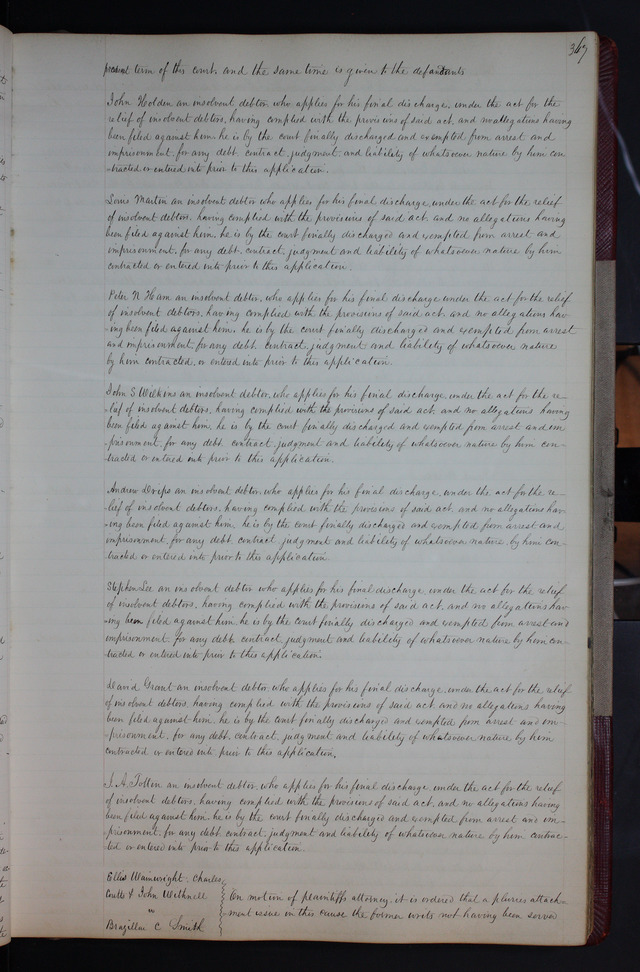 367
present term of this court, and the same time is given to the defendants
John Holden an insolvent debtor, who applies for his final discharge, under the act for the
relief of insolvent debtors, having complied with the provisions of said act, and no allegations having
been filed against him, he is by the court finally discharged and exempted from arrest and
imprisonment, for any debt, contract, judgment, and liability of whatsoever nature by him con
-tracted or entered into prior to this application.
Louis Martin an insolvent debtor, who applies for his final discharge, under the act for the relief
of insolvent debtors, having complied with the provisions of said act, and no allegations having
been filed against him, he is by the court finally discharged and exempted from arrest and
imprisonment, for any debt, contract, judgment and liability of whatsoever nature by him
contracted or entered into prior to this application.
Peter N Ham an insolvent debtor, who applies for his final discharge under the act for the relief
of insolvent debtors, having complied with the provisions of said act, and no allegations hav-
-ing been filed against him, he is by the court finally discharged and exempted from arrest
and imprisonment, for any debt, contract, judgment and liability of whatsoever nature
by him contracted, or entered into prior to this application.
John S Wilkins an insolvent debtor, who applies for his final discharge, under the act for the re-
-lief of insolvent debtors, having complied with the provisions of said act, and no allegations having
been filed against him, he is by the court finally discharged and exempted from arrest and im
prisonment, for any debt, contract, judgment and liability of whatsoever nature by him con-
tracted or entered into prior to this application.
Andrew Drips an insolvent debtor, who applies for his final discharge, under the act for the re-
lief of insolvent debtors, having complied with the provisions of said act, and no allegations hav-
-ing been filed against him, he is by the court finally discharged and exempted from arrest and
imprisonment, for any debt, contract, judgment and liability of whatsoever nature, by him con-
tracted or entered into prior to this application
Stephen Lee an insolvent debtor who applies for his final discharge, under the act for the relief
of insolvent debtors, having complied with the provisions of said act, and no allegations hav
-ing been filed against him, he is by the court finally discharged and exempted from arrest and
imprisonment, for any debt, contract, judgment and liability of whatsoever nature by him con-
-tracted or entered into prior to this application.
David Grant an insolvent debtor, who applies for his final discharge, under the act for the relief
of insolvent debtors having complied with the provisions of said act, and no allegations having
been filed against him, he is by the court finally discharged and exempted from arrest and im-
-prisonment, for any debt, contract, judgment and liability of whatsoever nature by him
contracted or entered into prior to this application.
J. A. Totten an insolvent debtor, who applies for his final discharge, under the act for the relief
of insolvent debtors, having complied with the provisions of said act, and no allegations having
been filed against him, he is by the court finally discharged and exempted from arrest and im-
prisonment, for any debt, contract, judgment and liability of whatsoever nature by him contrac-
ted or entered into prior to this application
Ellis Wainwright, Charles
Coutts & John Withnell
vs
Brazillai C Smith
On motion of plaintiffs attorney, it is ordered that a pluries attach-
-ment issue in this cause the former writs not having been served